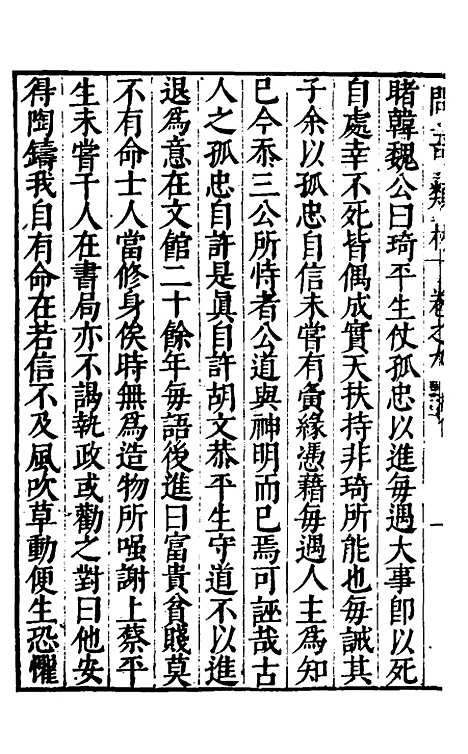 問奇類林 卷之九
賭韓魏公曰琦平生仗孤忠以進每遇大事卽以死
自處幸不死皆偶成實天扶持非琦所能也每誡其
子余以孤忠自信未嘗有夤緣憑藉每遇人主為知
已今忝三公所恃者公道與神明而已焉可誣哉古
人之孤忠自許是眞自許胡文恭平生守道不以進
退爲意在文館二十餘年每語後進曰富貴貧賤莫
不有命士人當修身俟時無爲造物所嗤謝上蔡平
生未嘗干人在書局亦不謁執政或勸之對曰他安
得陶鑄我自有命在若信不及風吹草動便生恐懼